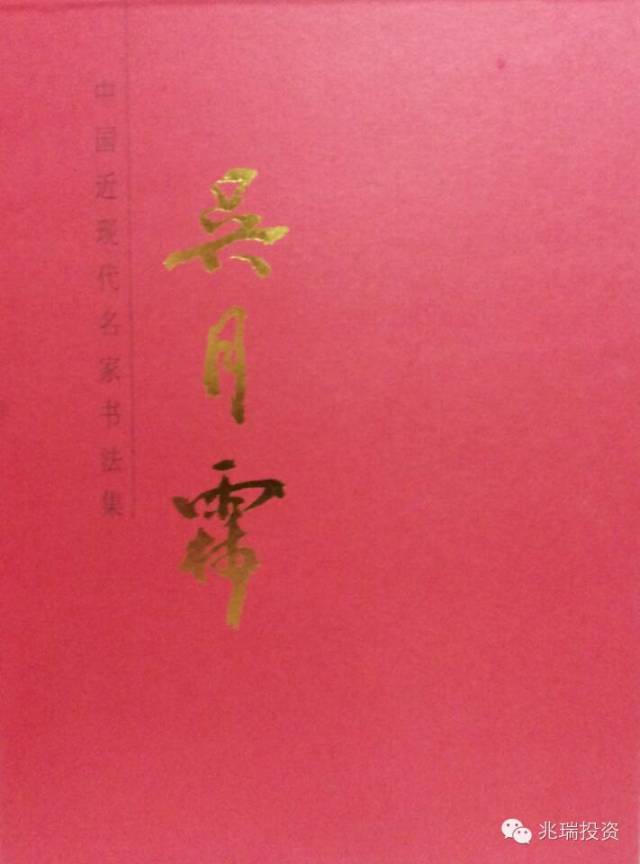 中国近现代名家书法集
吴月霖
兆瑞投资